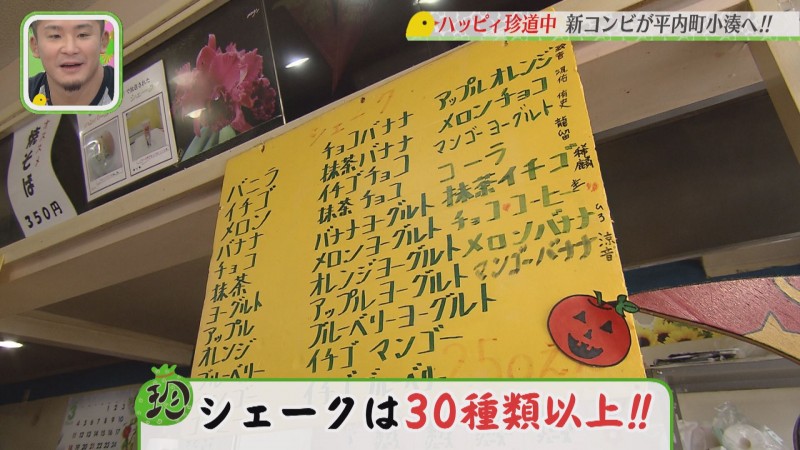 ハッピィ珍道中 新コンビが平内町小湊へ!!
焼そば
350円
シェーク
バニラ
イチゴ
メロン
バナナ
チョコ
抹茶
ヨーグルト
アップル
オレンジ
ブルーベリー
チョコバナナ
抹茶バナナ
イチゴチョコ
抹茶チョコ
バナナヨーグルト
メロンヨーグルト
オレンジヨーグルト
アップルヨーグルト
ブルーベリーヨーグルト
イチゴマンゴー
アップルオレンジ
メロンチョコ
マンゴーヨーグルト
コーラ
抹茶イチゴ
チョココーヒー
メロンバナナ
マンゴーバナナ
250えん
珍
シェークは30種類以上!!